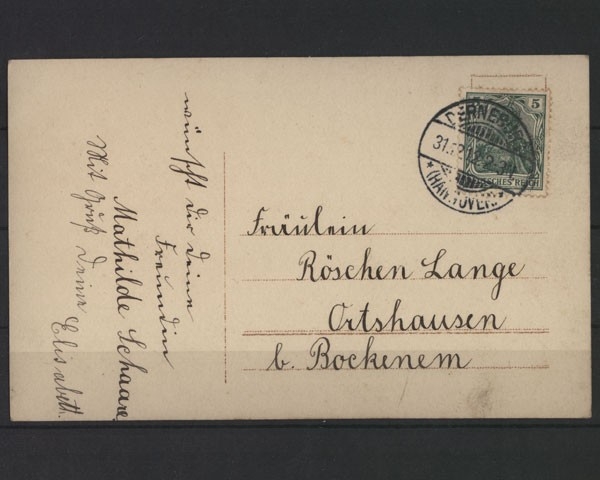 wünscht dir deine
Freundin
Mathilde Schaare
Mit Gruß deine Elisabeth.
Fräulein
Röschen Lange
Ortshausen
b. Bockenem
5
DEUTSCHES REICH
DERNEBURG
31.12.
*(HANNOVER)